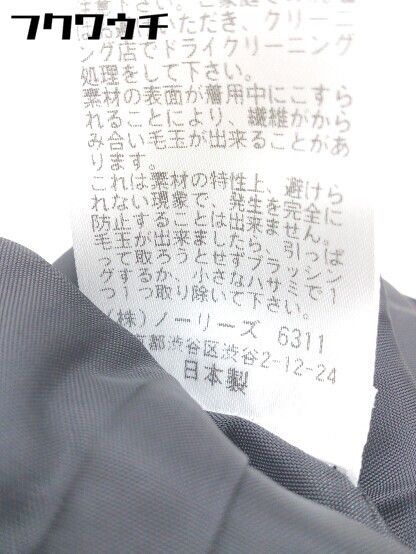 フクウロウチ
注意下さい。ご家庭での
いただき、クリーニ
ング店でドライクリーニング
処理をして下さい。
素材の表面が着用中にこすら
れることにより、繊維がから
み合い毛玉が出来ることがあ
ります。
これは素材の特性上、避けら
れない現象で、発生を完全に
防止することは出来ません。
毛玉が出来ましたら、引っぱ
って取ろうとせずブラッシン
グするか、小さなハサミで1
つ1つ取り除いて下さい。
(株)ノーリーズ 6311
都渋谷区渋谷2-12-24
日本製